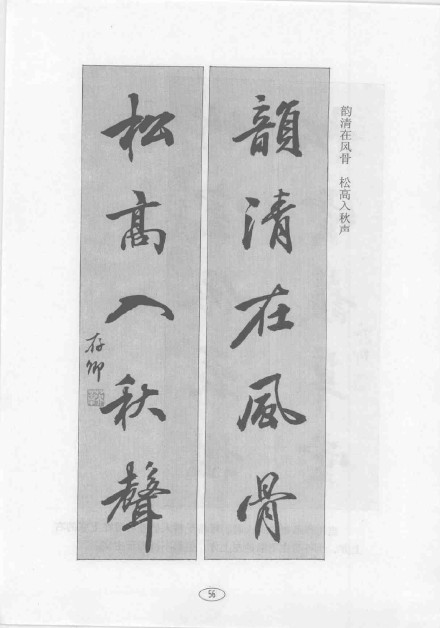 韵清在风骨　松高入秋声
韻清在風骨
松高入秋聲
存卿
56